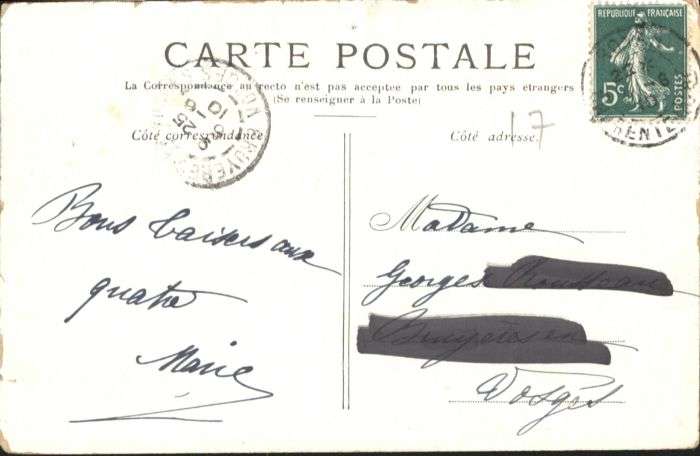 CARTE POSTALE
La Correspondance au recto n'est pas acceptée par tous les pays étrangers
(Se renseigner à la Poste)
REPUBLIQUE FRANÇAISE
5c
POSTES
Côté correspondance
Côté adresse.
17
Bons baisers aux
quatre
Marie
Madame
Georges
Vosges